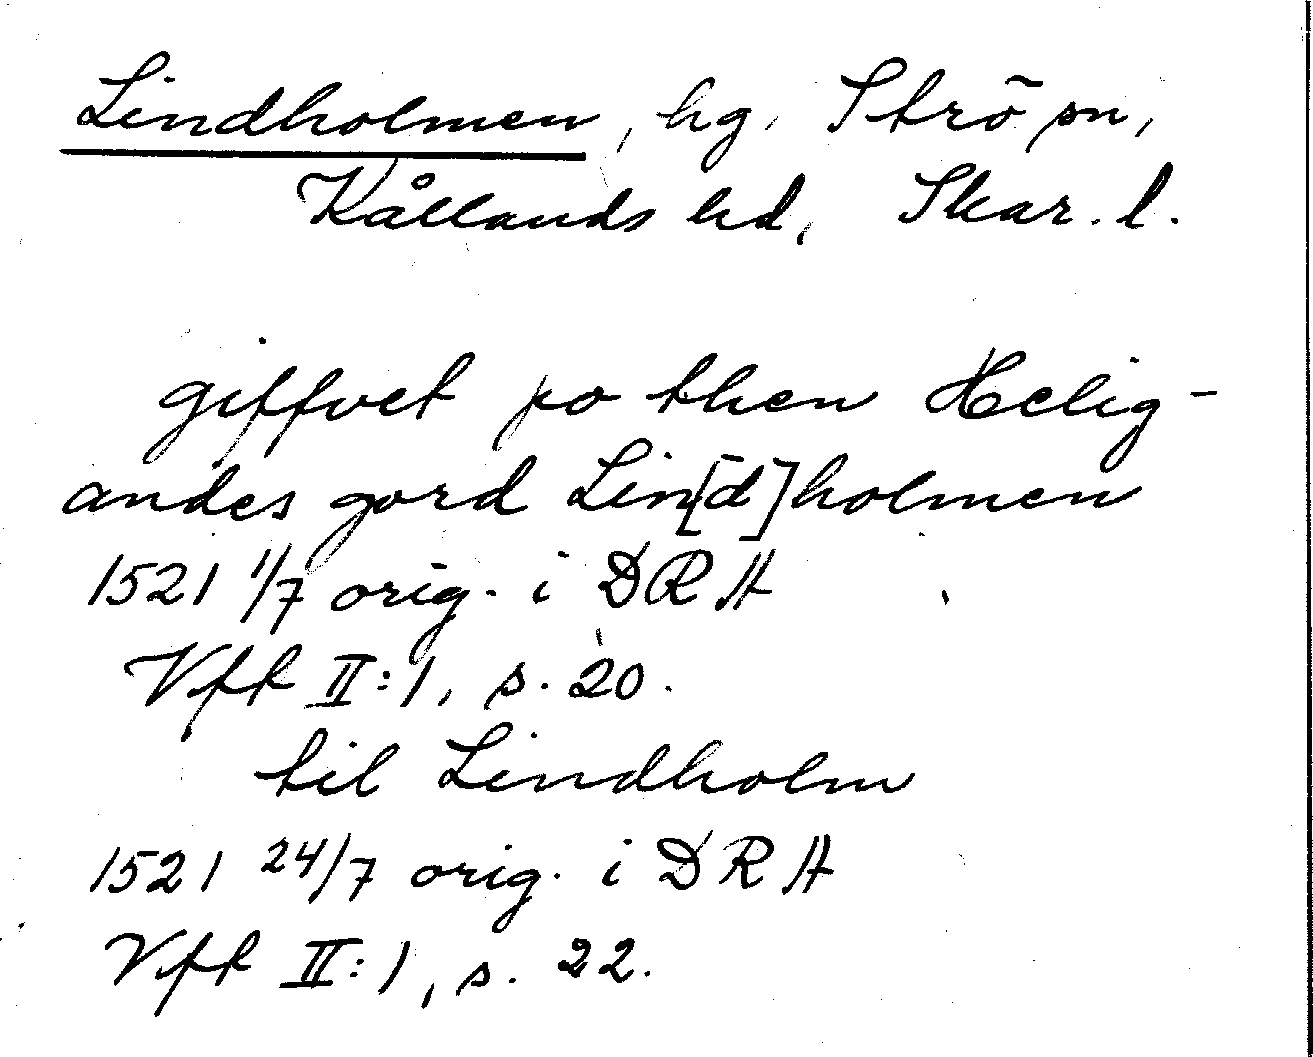 Lindholmen, hg. Strö sn,
Kållands hd, Skar. l.
giffvet po then Helig-
andes gord Lin[d]holmen
1521 1/7 orig. i DRA
Vfk II:1, s. 20.
til Lindholm
1521 24/7 orig. i DRA
Vfk II:1, s. 22.